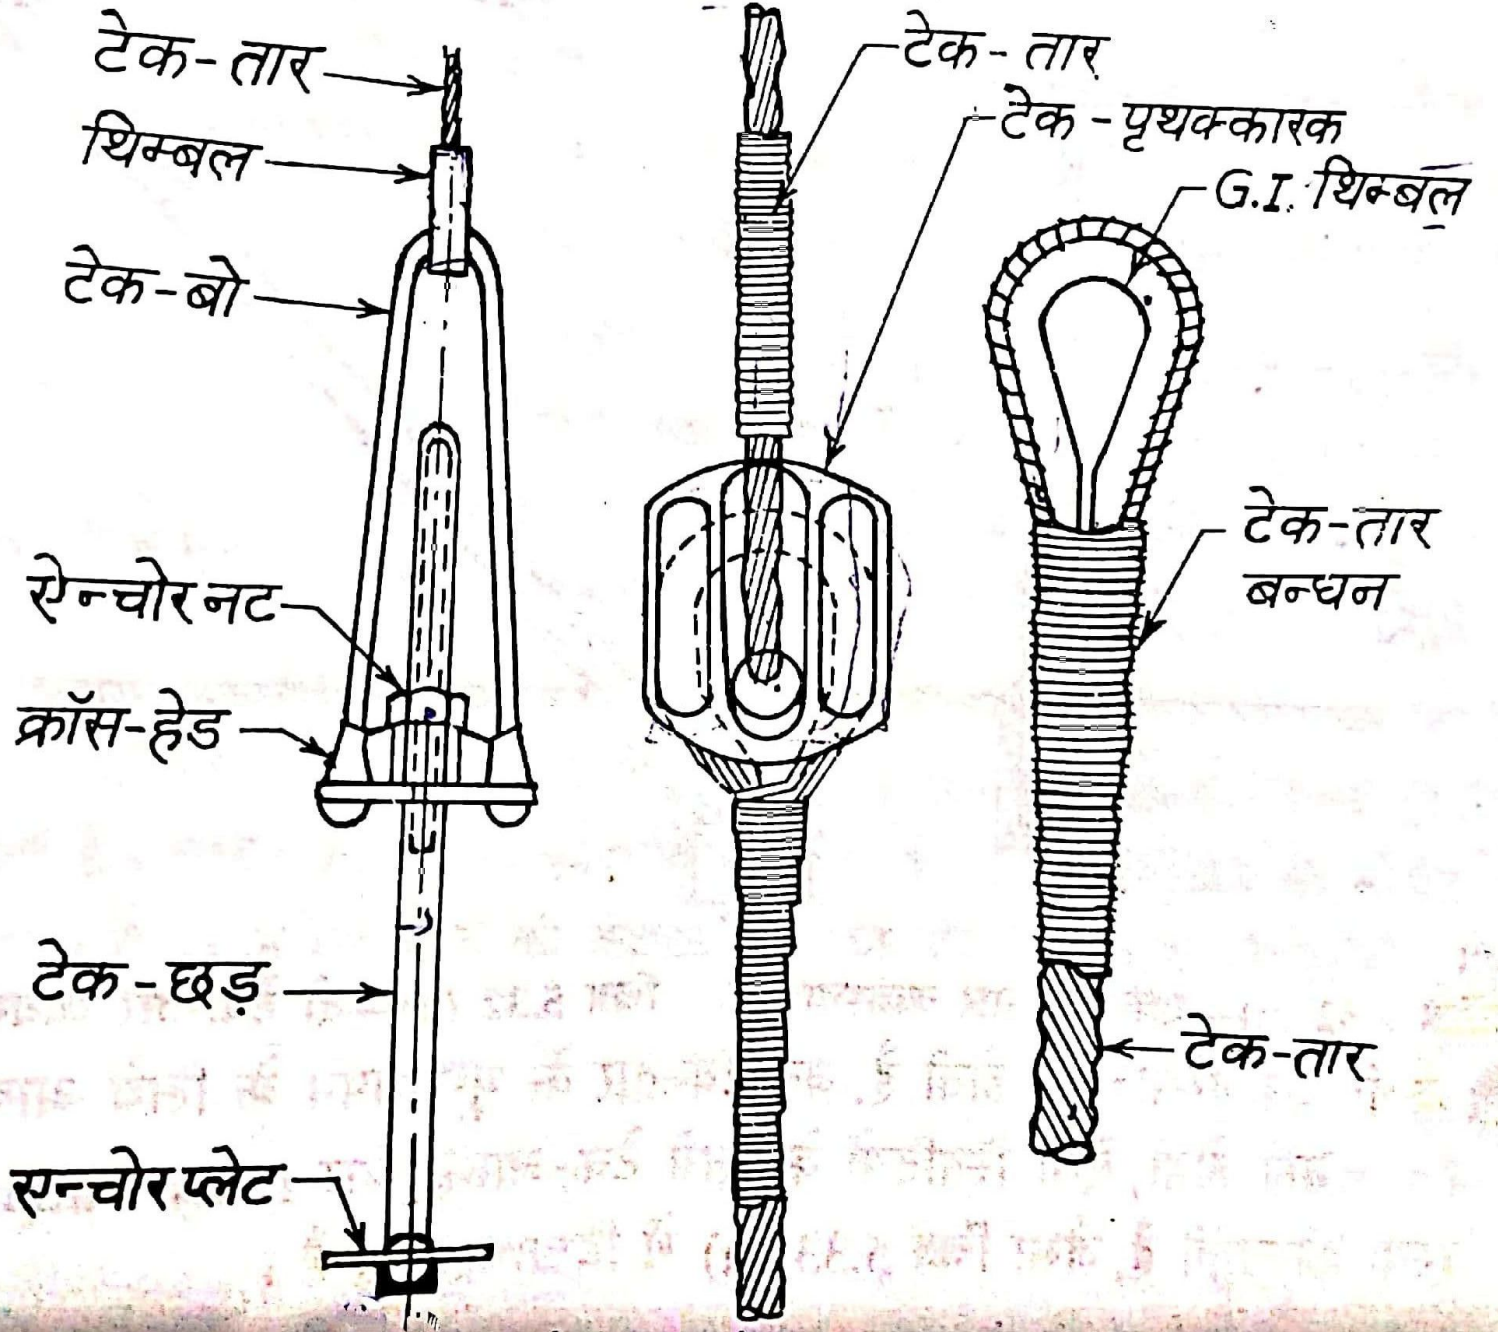 टेक-तार
थिम्बल
टेक-बो
ऐन्चोर नट
क्रॉस-हेड
टेक-छड़
एन्चोर प्लेट
टेक-तार
टेक-पृथक्कारक
G.I. थिम्बल
टेक-तार
बन्धन
टेक-तार